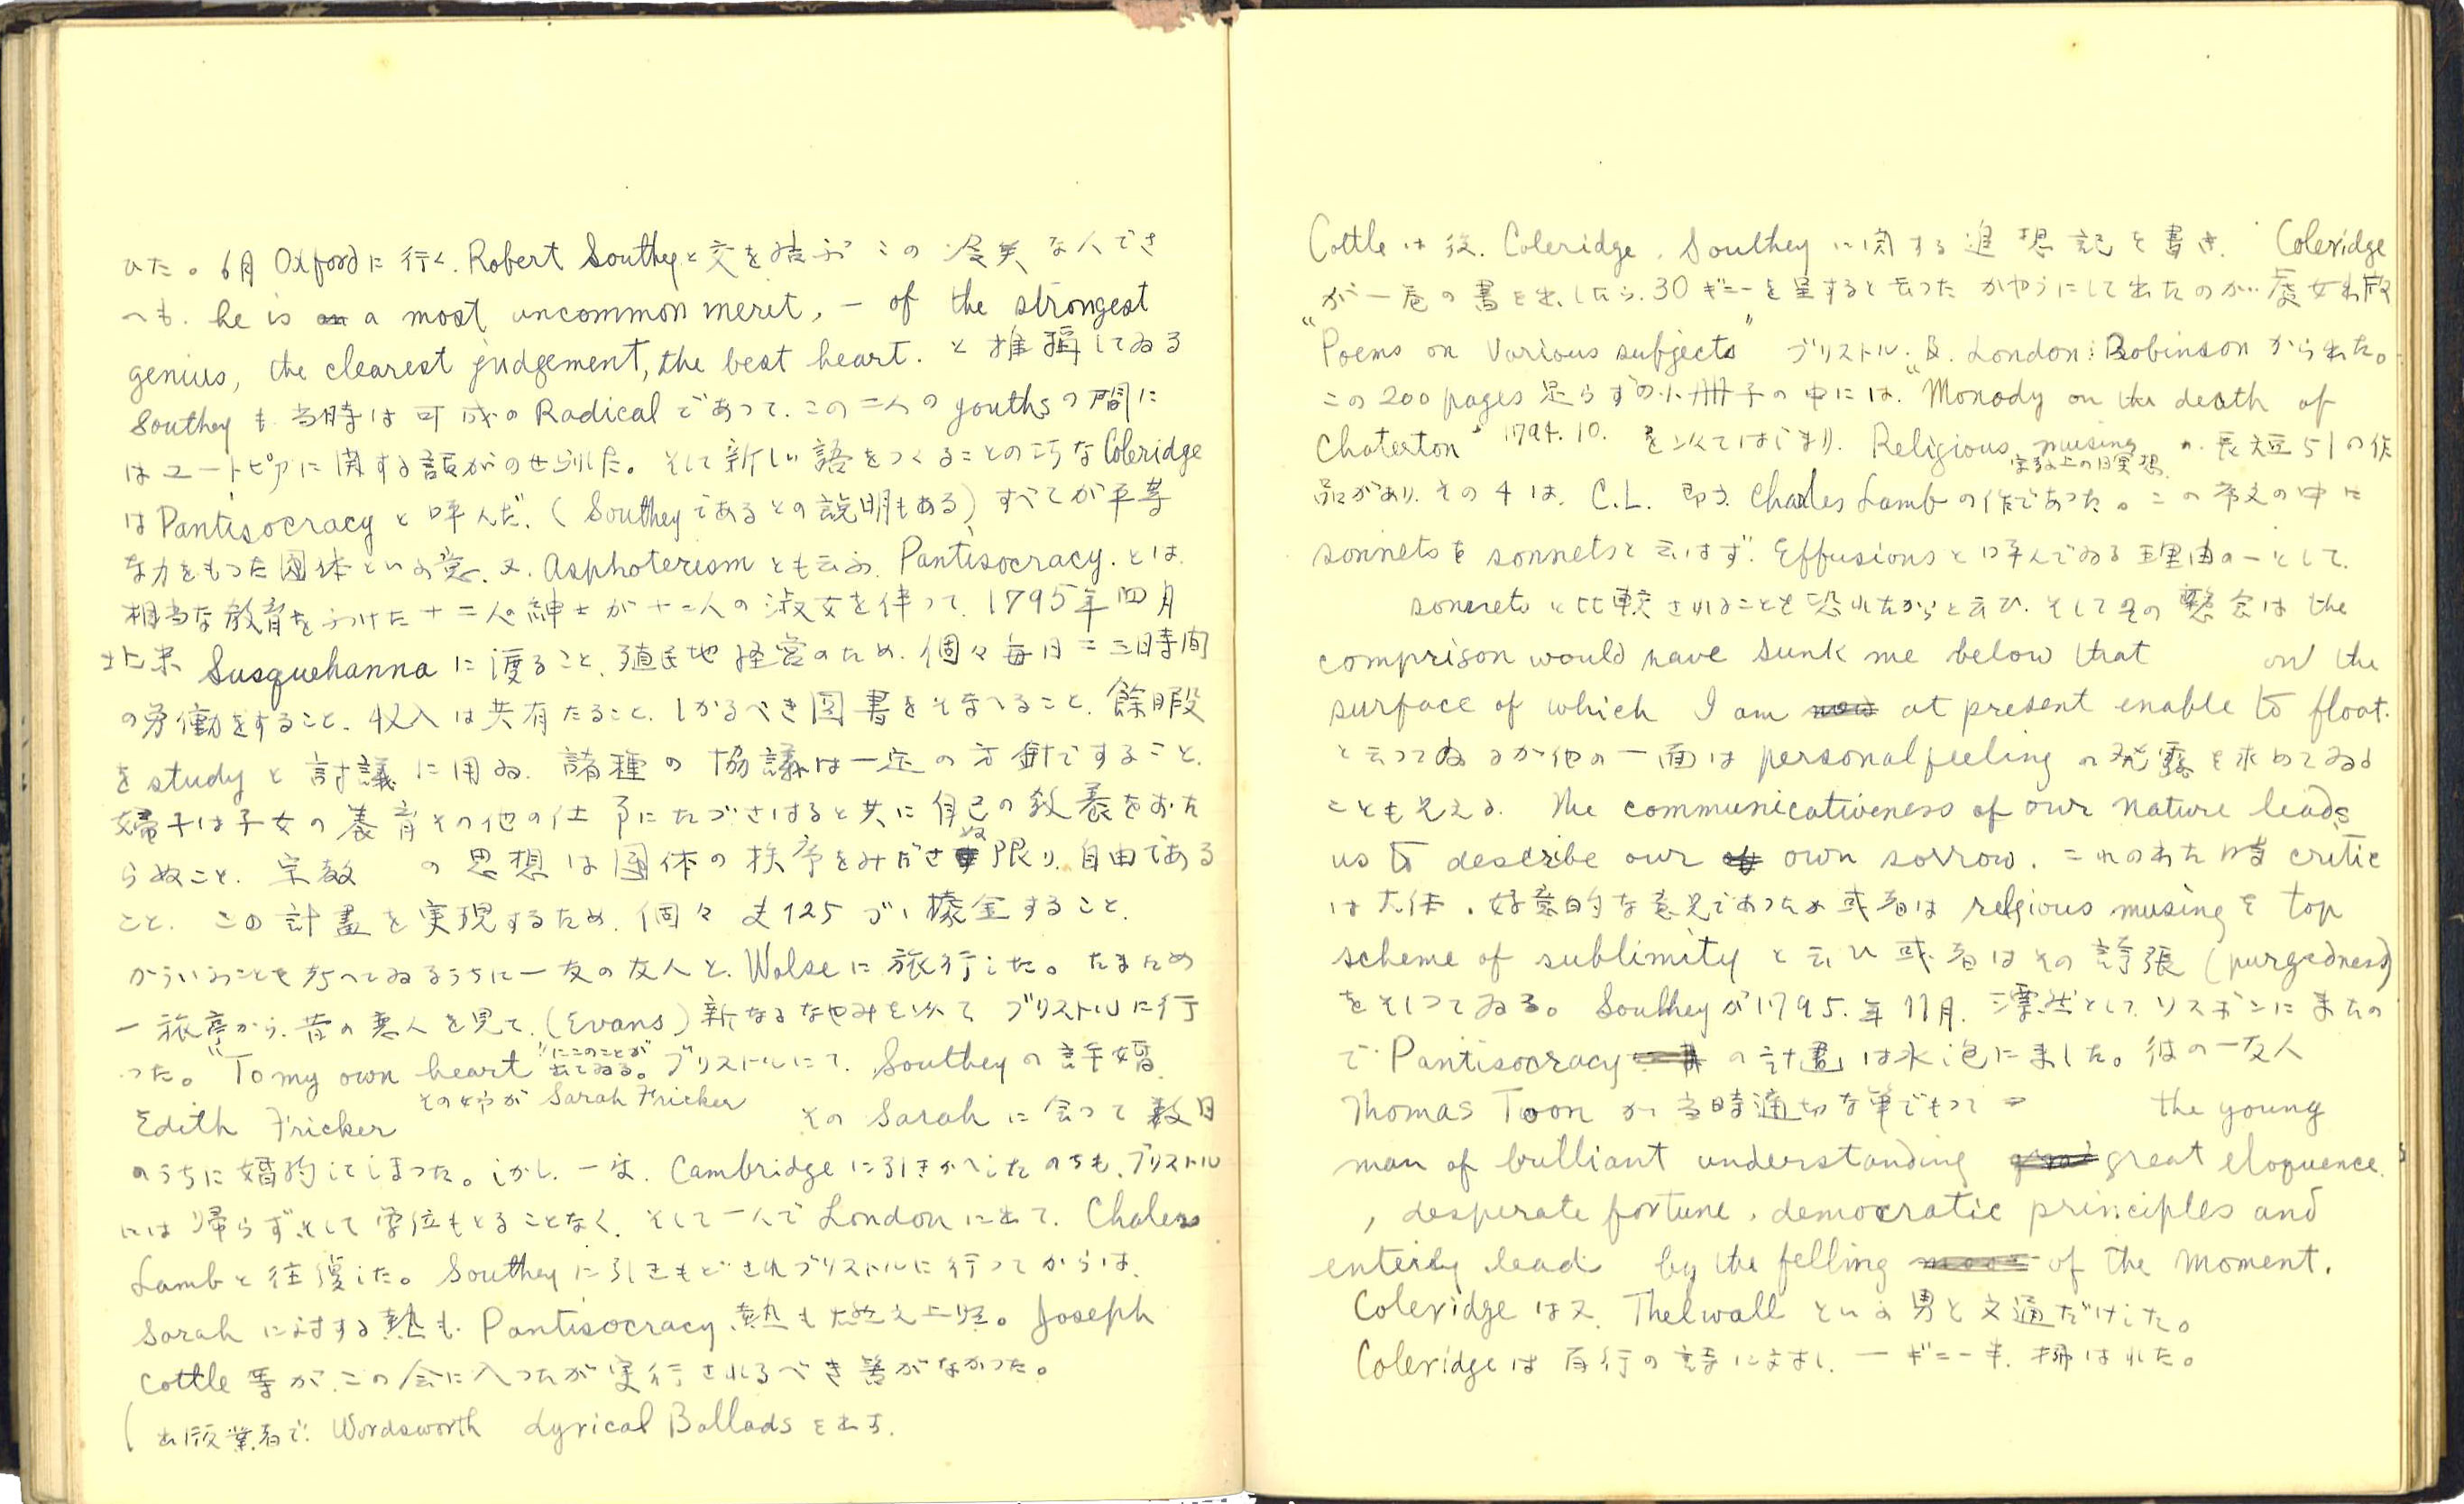 ひた。6月 Oxfordに行く. Robert Southeyと交を結ぶ この 冷笑な人でさ
へも. he is a most uncommon merit, — of the strongest
genius, the clearest judgement, the best heart. と推称してゐる
Southeyも当時は可成のRadicalであつて. この二人のyouthsの間に
はユートピアに関する話がのせられた。そして新しい語をつくることの巧なColeridge
はPantisocracyと呼んだ. (Southeyであるとの説明もある) すべてが平等
な力をもつた團体といふ意. 又. Asphoterismとも云ふ. Pantisocracy. とは.
相当な教育をうけた十二人の紳士が十二人の淑女を伴つて. 1795年四月
北米 Susquehannaに渡ること. 殖民地経営のため. 個々毎日二三時間
の労働をすること. 収入は共有たること. しかるべき図書をそなへること. 餘暇
をstudyと討議に用ゐ. 諸種の協議は一定の方針ですること.
婦子は子女の養育その他の仕事にたづさはると共に自己の教養をおた
らぬこと. 宗教 の思想は團体の秩序をみださぬ限り. 自由である
こと. この計畫を実現するため. 個々 125づゝ 醵金すること.
かういふことを考へてゐるうちに一友の友人と. Walseに旅行した。たまため
一旅亭から. 昔の恋人を見て. (Evans) 新なるなやみを以て ブリストルに行
つた。"To my own heart"にこのことが出てゐる。ブリストルにて. Southeyの許婚.
Edith Fricker その姉が Sarah Fricker そのSarahに会つて数日
のうちに婚約してしまつた。しかし. 一旦. Cambridgeに引きかへしたのちも. ブリストル
には帰らず. そして学位もとることなく. そして一人でLondonに出て. Chales
Lambと往復した。Southeyに引きもどされブリストルに行つてからは.
Sarahに対する熱も. Pantisocracy. 熱も燃え上つた。Joseph
Cottle等が. この会に入つたが実行されるべき筈がなかつた。
( 出版業者で. Wordsworth Lyrical Balladsを出す.
Cottleは後. Coleridge. Southeyに関する追想記を書き. Coleridge
が一巻の書を出したら. 30ギニーを呈すると云つた かやうにして出たのが. 處女出版
"Poems on Various subjects" ブリストル. & London: Robinsonから出た。
この200 pages足らずの小冊子の中には. "Monody on the death of
Chaterton" 1794. 10. を以てはじまり. Religious musing の. 長短51の作
宗教上の冥想
品があり. その4は. C.L. 即ち. Charles Lambの作であつた。この序文の中に
sonnetsをsonnetsと云はず. Effusionsと呼んでゐる理由の一として.
sonnetsと比較されることを恐れたからと云ひ. そしてその懸念は the
comprison would have sunk me below that on the
surface of which I am at present enable to float.
と云つてゐるが他の一面は personal feelingの発露を求めてゐる
とも見える. The communicativeness of our nature leads
us to describe our own sorrow. これの出た時 critic
は大体. 好意的な意見であつたが或者は relgious musingを top
scheme of sublimityと云ひ或者はその誇張 (purgedness)
をそしつてゐる。Southeyが1795.年11月. 漂然として. リスボンに去たの
で. Pantisocracy の計畫は水泡に帰した。彼の一友人
Thomas Toonが当時適切な筆でもつて the young
man of brilliant understanding great eloquence.
, desperate fortune, democratic principles and
enteirly lead by the felling of the moment.
Coleridgeは又. Thelwallといふ男と文通だけした。
Coleridgeは百行の詩に対し. 一ギニー半. 拂はれた。